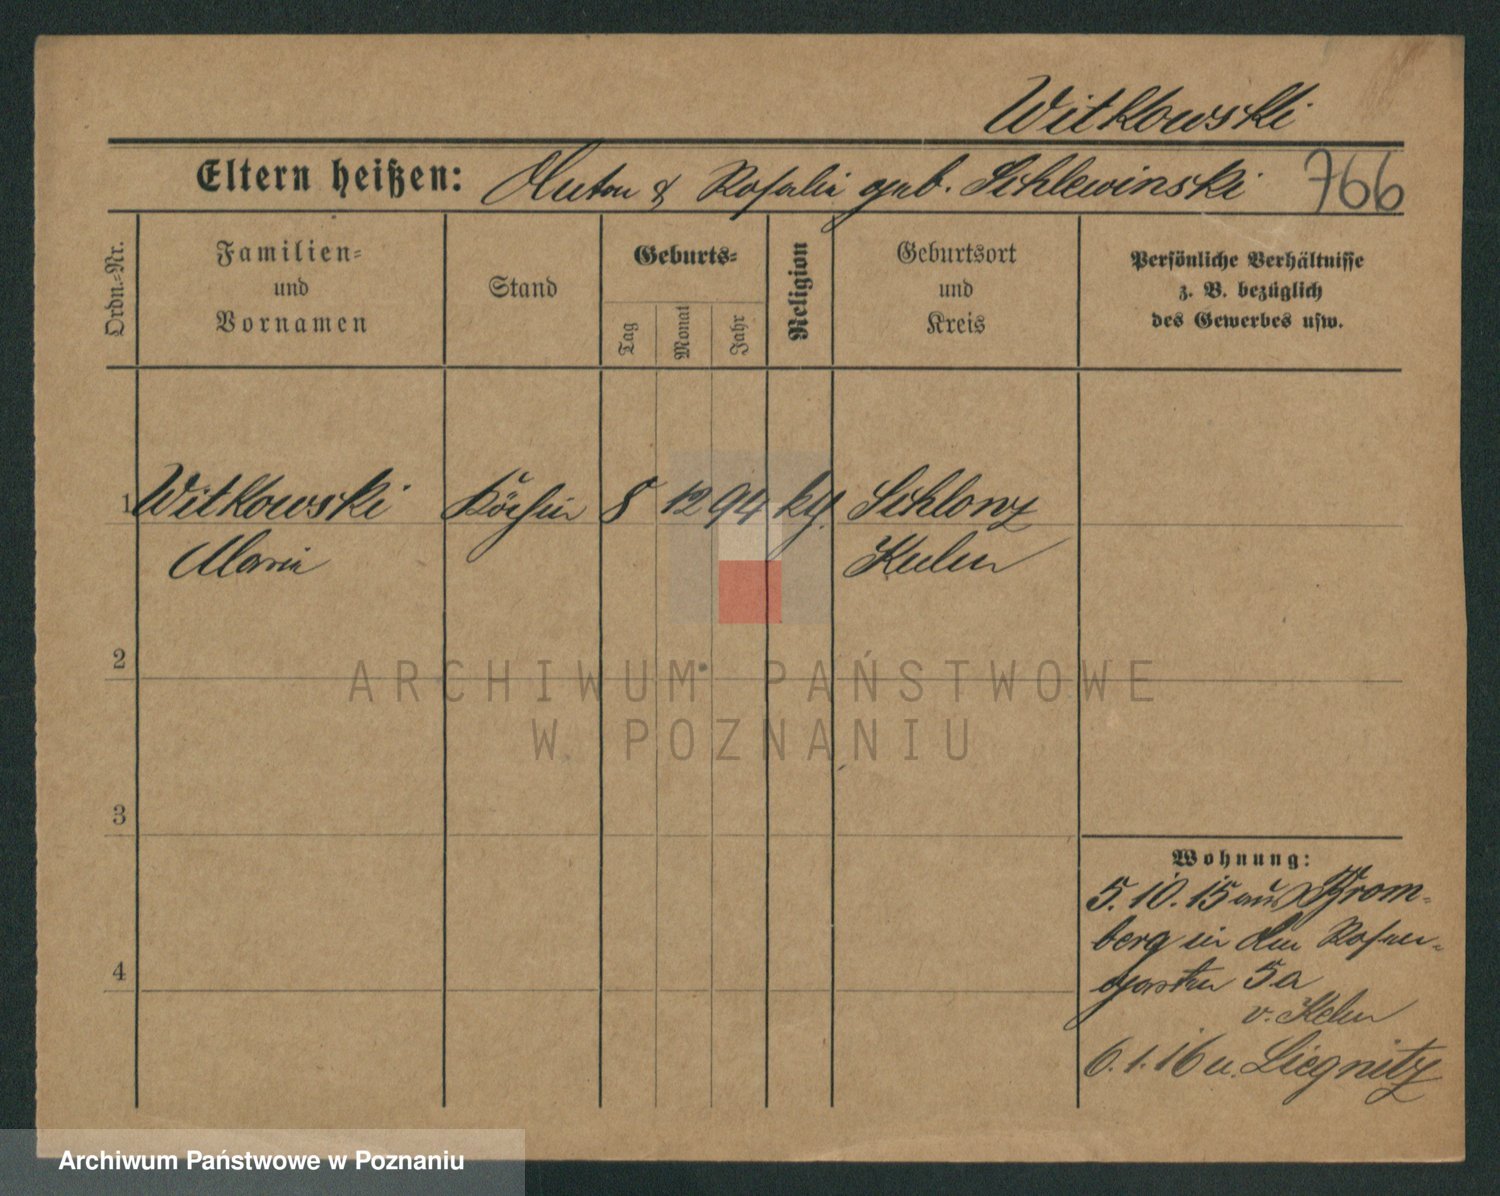 Witkowski
Eltern heißen: Anton & Rosalia geb. Schlewinski 766
Ordn.-Nr.
Familien-
und
Vornamen
Stand
Geburts-
Tag
Monat
Jahr
Religion
Geburtsort
und
Kreis
Persönliche Verhältnisse
z. B. bezüglich
des Gewerbes usw.
1 Witkowski Köchin 8 12 94 kg. Schlonz
Maria Kulm
2
3
4
Wohnung:
5.10.15 aus Brom-
berg in den Rosen-
garten 5a
v.
6.1.16 n. Liegnitz
ARCHIWUM PAŃSTWOWE
W POZNANIU
Archiwum Państwowe w Poznaniu